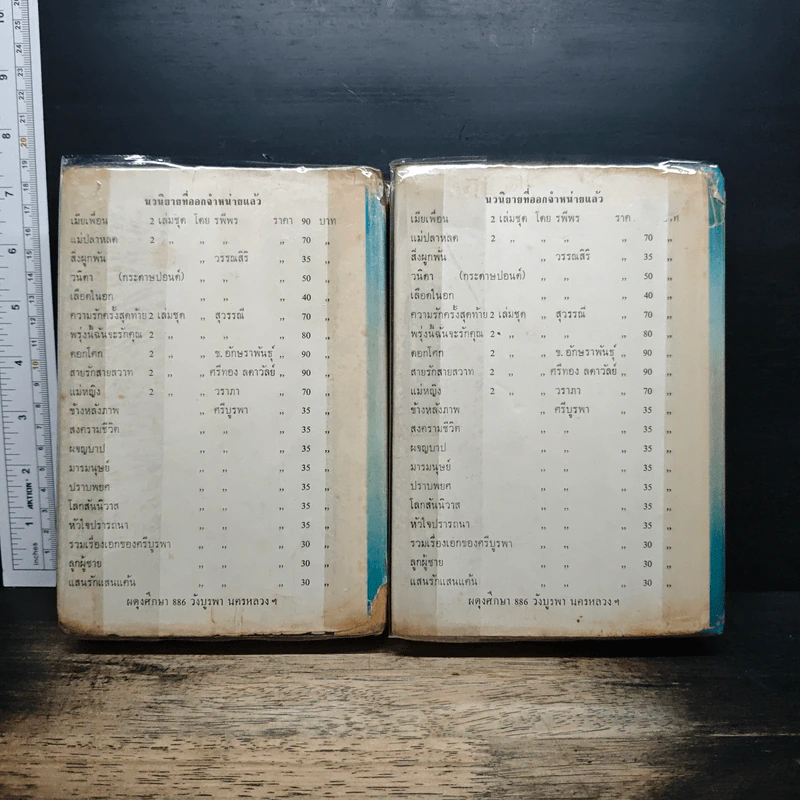 นวนิยายที่ออกจำหน่ายแล้ว
เมียเพื่อน 2 เล่มชุด โดย รพีพร ราคา 90 บาท
แม่ปลาหลด 2 ,, ,, ,, ,, 70 ,,
สิ่งผูกพัน ,, วรรณสิริ ,, 35 ,,
วนิดา (กระดาษปอนด์) ,, ,, ,, 50 ,,
เลือดในอก ,, ,, ,, 40 ,,
ความรักครั้งสุดท้าย 2 เล่มชุด ,, สุวรรณี ,, 70 ,,
พรุ่งนี้ฉันจะรักคุณ 2 ,, ,, ,, ,, 80 ,,
ดอกโศก 2 ,, ,, ข. อักษราพันธุ์ ,, 90 ,,
สายรักสายสวาท 2 ,, ,, ศรีทอง ลดาวัลย์ ,, 90 ,,
แม่หญิง 2 ,, ,, วราภา ,, 70 ,,
ข้างหลังภาพ ,, ศรีบูรพา ,, 35 ,,
สงครามชีวิต ,, ,, ,, 35 ,,
ผจญบาป ,, ,, ,, 35 ,,
มารมนุษย์ ,, ,, ,, 35 ,,
ปราบพยศ ,, ,, ,, 35 ,,
โลกสันนิวาส ,, ,, ,, 35 ,,
หัวใจปรารถนา ,, ,, ,, 35 ,,
รวมเรื่องเอกของศรีบูรพา ,, ,, ,, 30 ,,
ลูกผู้ชาย ,, ,, ,, 30 ,,
แสนรักแสนแค้น ,, ,, ,, 30 ,,
ผดุงศึกษา 886 วังบูรพา นครหลวง ฯ
นวนิยายที่ออกจำหน่ายแล้ว
เมียเพื่อน 2 เล่มชุด โดย รพีพร
แม่ปลาหลด 2 ,, ,, ,, ,, 70 ,,
สิ่งผูกพัน ,, วรรณสิริ ,, 35 ,,
วนิดา (กระดาษปอนด์) ,, ,, ,, 50 ,,
เลือดในอก ,, ,, ,, 40 ,,
ความรักครั้งสุดท้าย 2 เล่มชุด ,, สุวรรณี ,, 70 ,,
พรุ่งนี้ฉันจะรักคุณ 2 ,, ,, ,, ,, 80 ,,
ดอกโศก 2 ,, ,, ข. อักษราพันธุ์ ,, 90 ,,
สายรักสายสวาท 2 ,, ,, ศรีทอง ลดาวัลย์ ,, 90 ,,
แม่หญิง 2 ,, ,, วราภา ,, 70 ,,
ข้างหลังภาพ ,, ศรีบูรพา ,, 35 ,,
สงครามชีวิต ,, ,, ,, 35 ,,
ผจญบาป ,, ,, ,, 35 ,,
มารมนุษย์ ,, ,, ,, 35 ,,
ปราบพยศ ,, ,, ,, 35 ,,
โลกสันนิวาส ,, ,, ,, 35 ,,
หัวใจปรารถนา ,, ,, ,, 35 ,,
รวมเรื่องเอกของศรีบูรพา ,, ,, ,, 30 ,,
ลูกผู้ชาย ,, ,, ,, 30 ,,
แสนรักแสนแค้น ,, ,, ,, 30 ,,
ผดุงศึกษา 886 วังบูรพา นครหลวง ฯ
inches
AKTION